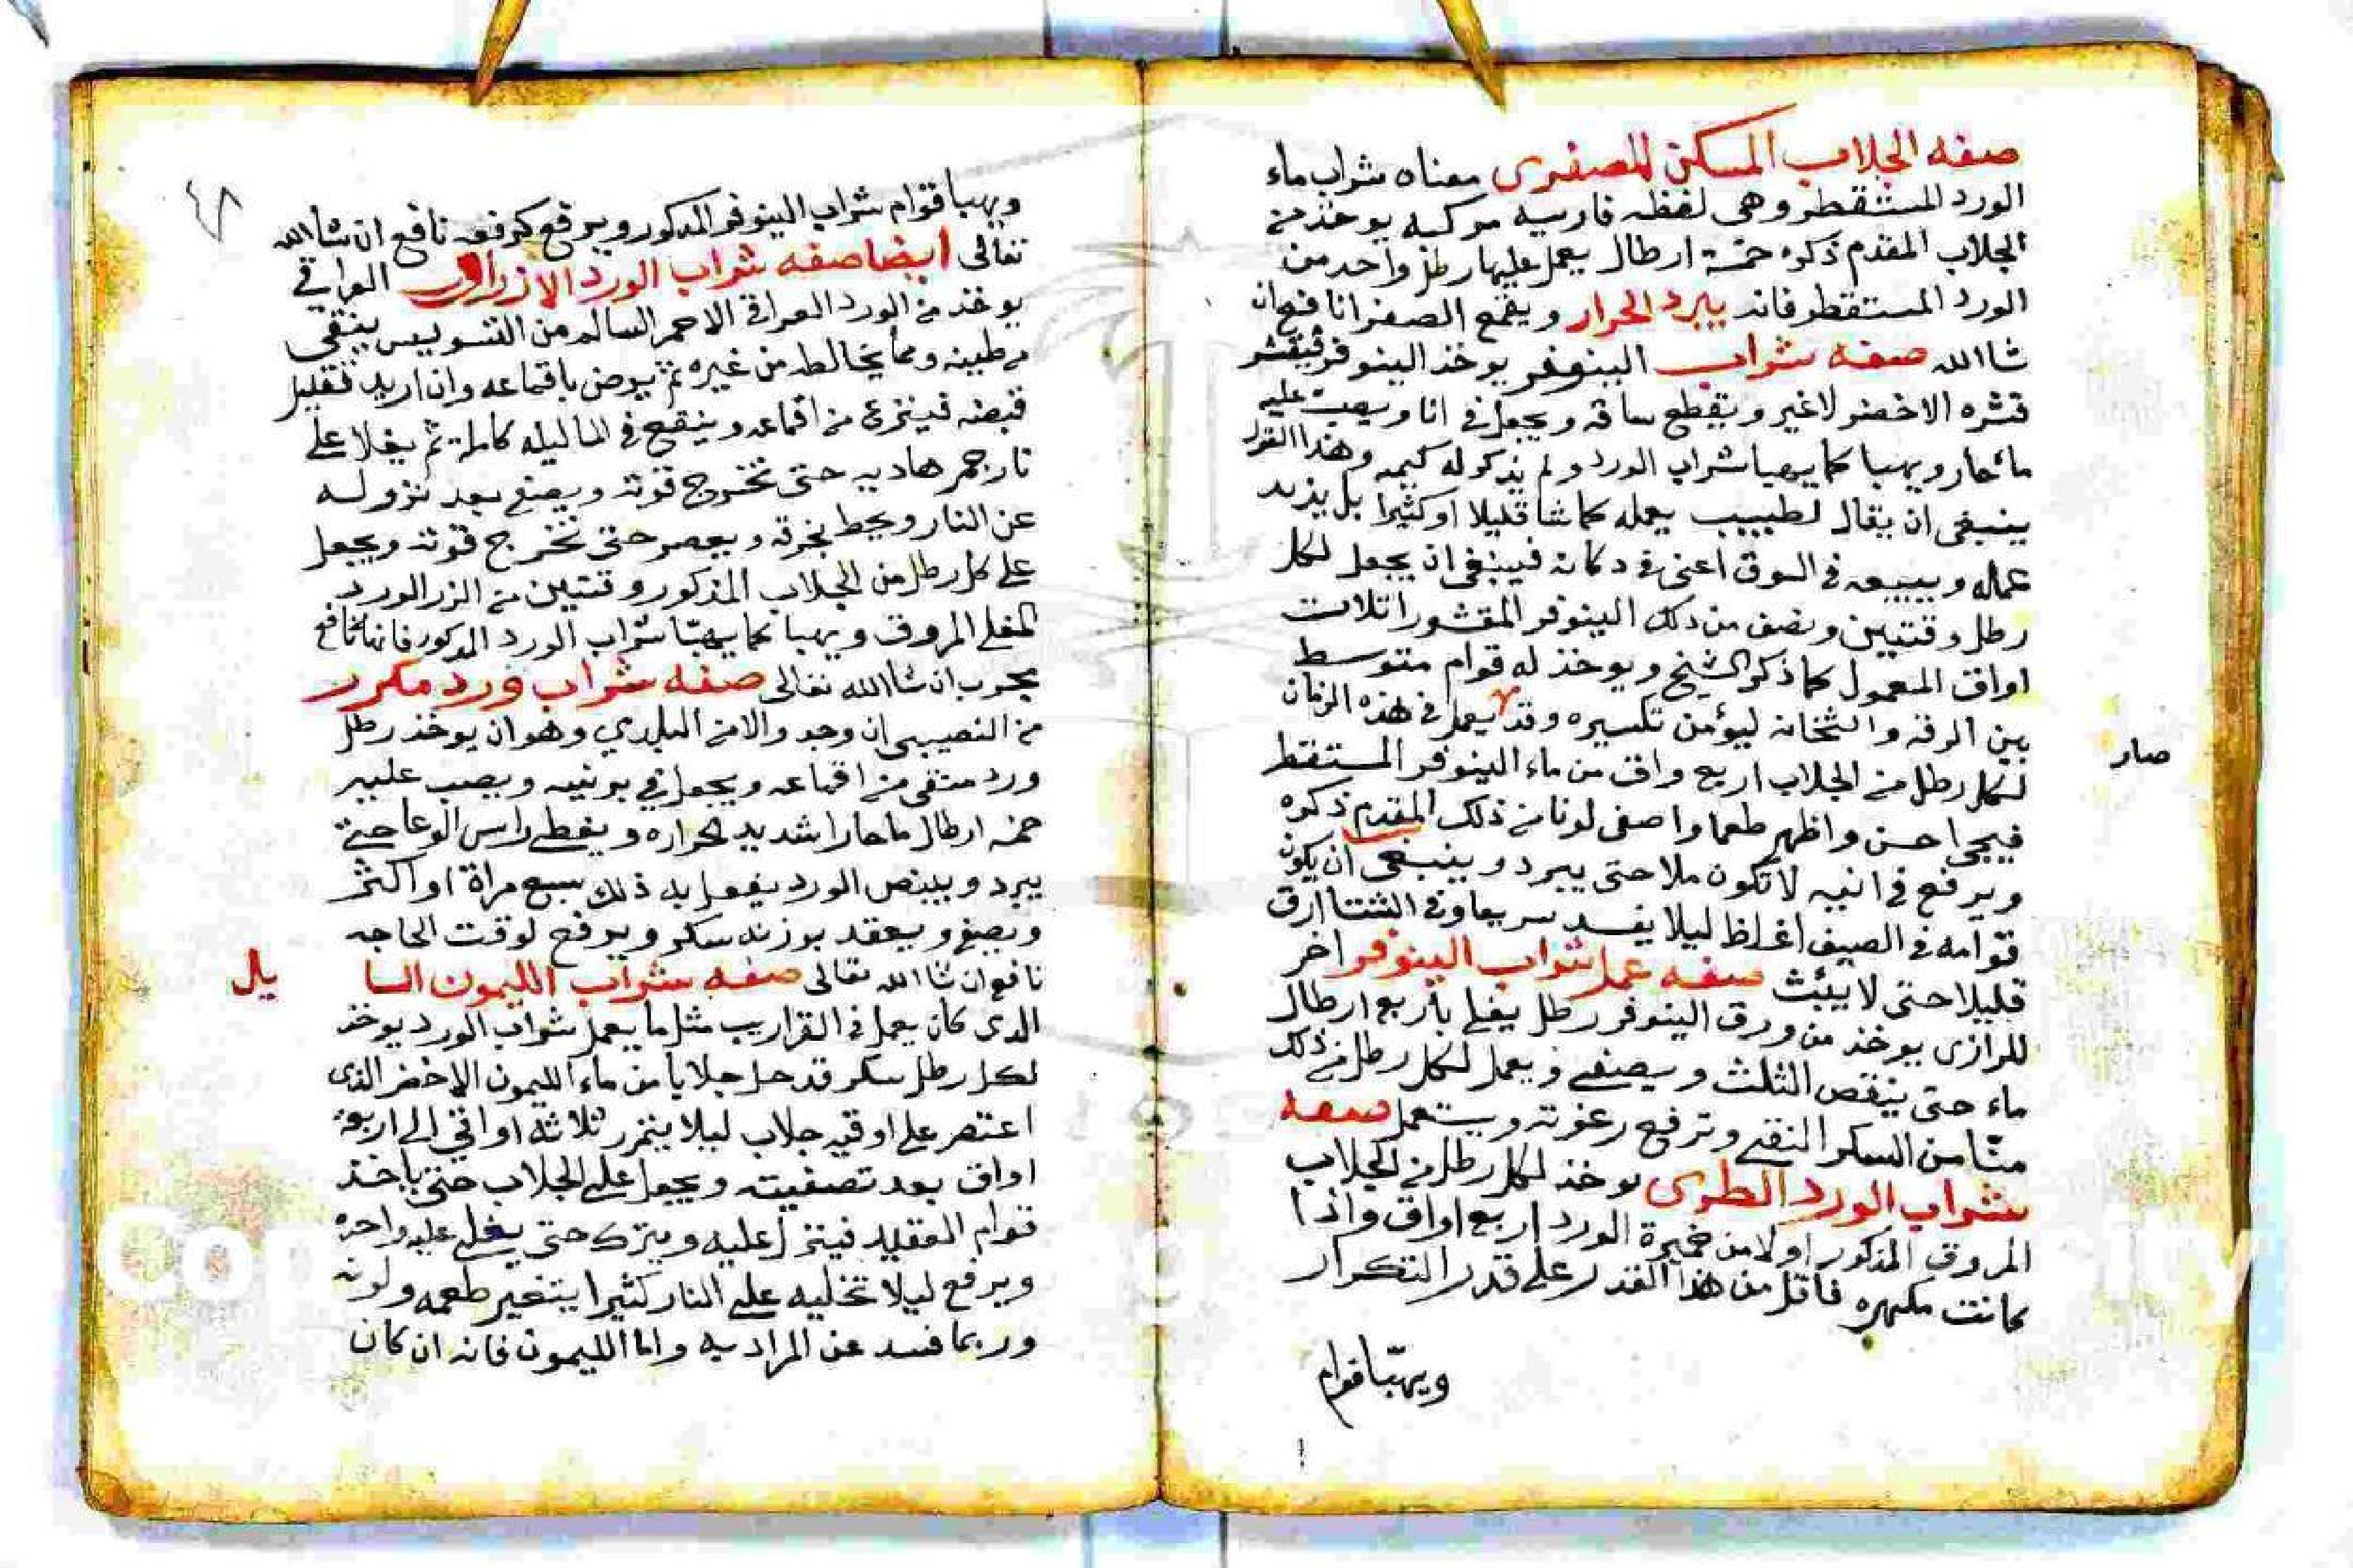 صفه الجلاب المسكن للمصفرى معناه شراب ماء
الورد المستقطر وهى لفظه فارسيه مركبه يوخذ من
الجلاب المقدم ذكره خمسة ارطال يعمل عليها رطل واحد من
الورد المستقطر فانه يبرد الحرار ويقمع الصفرا نافع ان
شا الله صفه شراب الينوفر يوخذ الينوفر فيقشر
قشره الاخضر لاغير ويقطع ساقه ويجعل فى انا ويصب عليه
ماء حار ويهيا كما يهيا شراب الورد ولم يذكر له كيه وهذا القول
ينبغى ان يقال لطبيب يعمله كما شا قليلا او كثيرا بل يزيد
عمله ويبيعه فى السوق اعنى فى دكانه فينبغى ان يجعل لكل
رطل وقتيين ونصف من ذلك الينوفر المقشور ا ثلات
اواق المعمول كما ذكر الشيخ ويوخذ له قوام متوسط
بين الرقه والثخانه ليؤمن تكسيره وقد يعمل فى هذه الزمان
صار
لكل رطل من الجلاب اربع واق من ماء الينوفر المستقط
فيجى احسن واظهر طعما واصفى لونا من ذلك المقدم ذكره
ويرفع فى انيه لاتكون ملا حتى يبرد وينبغى ان يكون
قوامه فى الصيف اغلظ ليلا يفسد سريعا وفى الشتا ارق
قليلا حتى لا يئبث صفه عمل شراب الينوفر اخر
للرازى يوخذ من ورق الينوفر رطل يغلى باربع ارطال
ماء حتى ينقص الثلث ويصفى ويعمل لكل رطل من ذلك
منّا من السكر النقى وترفع رغوته ويستعمل صفه
شراب الورد الطرى يوخذ لكل رطل من الجلاب
المروق المذكور اولا من خميرة الورد اربع اواق واذا
كانت مكرره فاقل من هذا القدر على قدر التكرار
ويهيّا قوام
٤٨
ويهيا قوام شراب الينوفر المذكور ويرفع كرفعه نافع ان شا الله
تعالى ايضا صفه شراب الورد الازرارى العراقي
يوخذ من الورد العراقى الاحمر السالم من التسويس ينقى
من طينه ومما يخالطه من غيره ثم يرض باقماعه وان اريد تقليل
قبضه فينزع من اقماعه وينقع فى الما ليله كامله ثم يغلا على
نار جمر هاديه حتى تخرج قوته ويصفى بعد نزوله
عن النار ويحط بخرقه ويعصر حتى تخرج قوته ويجعل
على كل رطل من الجلاب المذكور وقتيين من الزر الورد
المغلى المروق ويهيا كما يهيّا شراب الورد المذكور فانه نافع
مجرب ان شا الله تعالى صفه شراب ورد مكرر
من النصيبى ان وجد والا من البلدي وهو ان يوخذ رطل
ورد منقى من اقماعه ويجعل في برنيه ويصب عليه
خمسه ارطال ما حار ا شديد الحراره ويغطى راس الوعا حتى
يبرد ويبيض الورد يفعل به ذلك سبع مراة او اكثر
ويصفى ويعقد بوزنه سكر ويرفع لوقت الحاجه
نافع ان شا الله تعالى صفه شراب الليمون السا يل
الدى كان يعمل فى القراريب مثل ما يعمل شراب الورد يوخذ
لكل رطل سكر قد حل جلابا من ماء الليمون الاخضر الذى
اعتصر على اوقيه جلاب ليلا يتمرر ثلاثة اواقي الى اربعة
اواق بعد تصفيته ويجعل على الجلاب حتى ياخذ
قوام العقيد فينزل عليه ويترك حتى يغلى عليه واحده
ويرفع ليلا تخليه على النار كثيرا يتغير طعمه ولونه
وربما فسد عن المراد به واما الليمون فانه ان كان